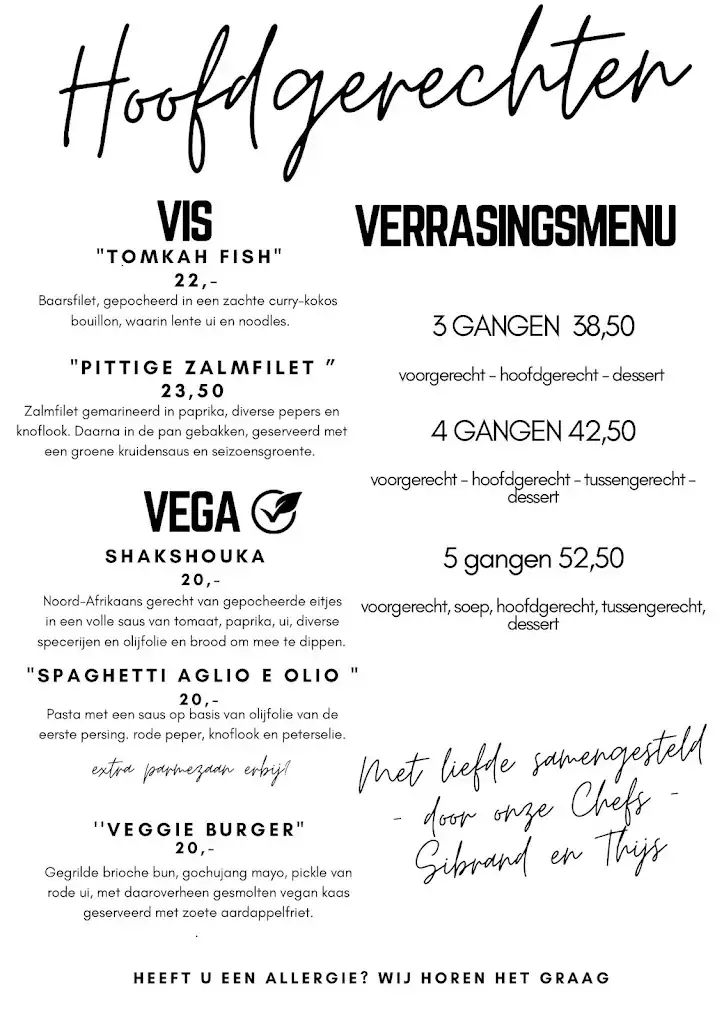 Hoofdgerechten
VIS
"TOMKAH FISH"
22,-
Baarsfilet, gepocheerd in een zachte curry-kokos
bouillon, waarin lente ui en noodles.
"PITTIGE ZALMFILET ”
23,50
Zalmfilet gemarineerd in paprika, diverse pepers en
knoflook. Daarna in de pan gebakken, geserveerd met
een groene kruidensaus en seizoensgroente.
VEGA
SHAKSHOUKA
20,-
Noord-Afrikaans gerecht van gepocheerde eitjes
in een volle saus van tomaat, paprika, ui, diverse
specerijen en olijfolie en brood om mee te dippen.
"SPAGHETTI AGLIO E OLIO "
20,-
Pasta met een saus op basis van olijfolie van de
eerste persing. rode peper, knoflook en peterselie.
extra parmezaan erbij?
''VEGGIE BURGER"
20,-
Gegrilde brioche bun, gochujang mayo, pickle van
rode ui, met daaroverheen gesmolten vegan kaas
geserveerd met zoete aardappelfriet.
.
VERRASINGSMENU
3 GANGEN 38,50
voorgerecht - hoofdgerecht - dessert
4 GANGEN 42,50
voorgerecht - hoofdgerecht - tussengerecht -
dessert
5 gangen 52,50
voorgerecht, soep, hoofdgerecht, tussengerecht,
dessert
Met liefde samengesteld
- door onze Chefs -
Sibrand en Thijs
HEEFT U EEN ALLERGIE? WIJ HOREN HET GRAAG